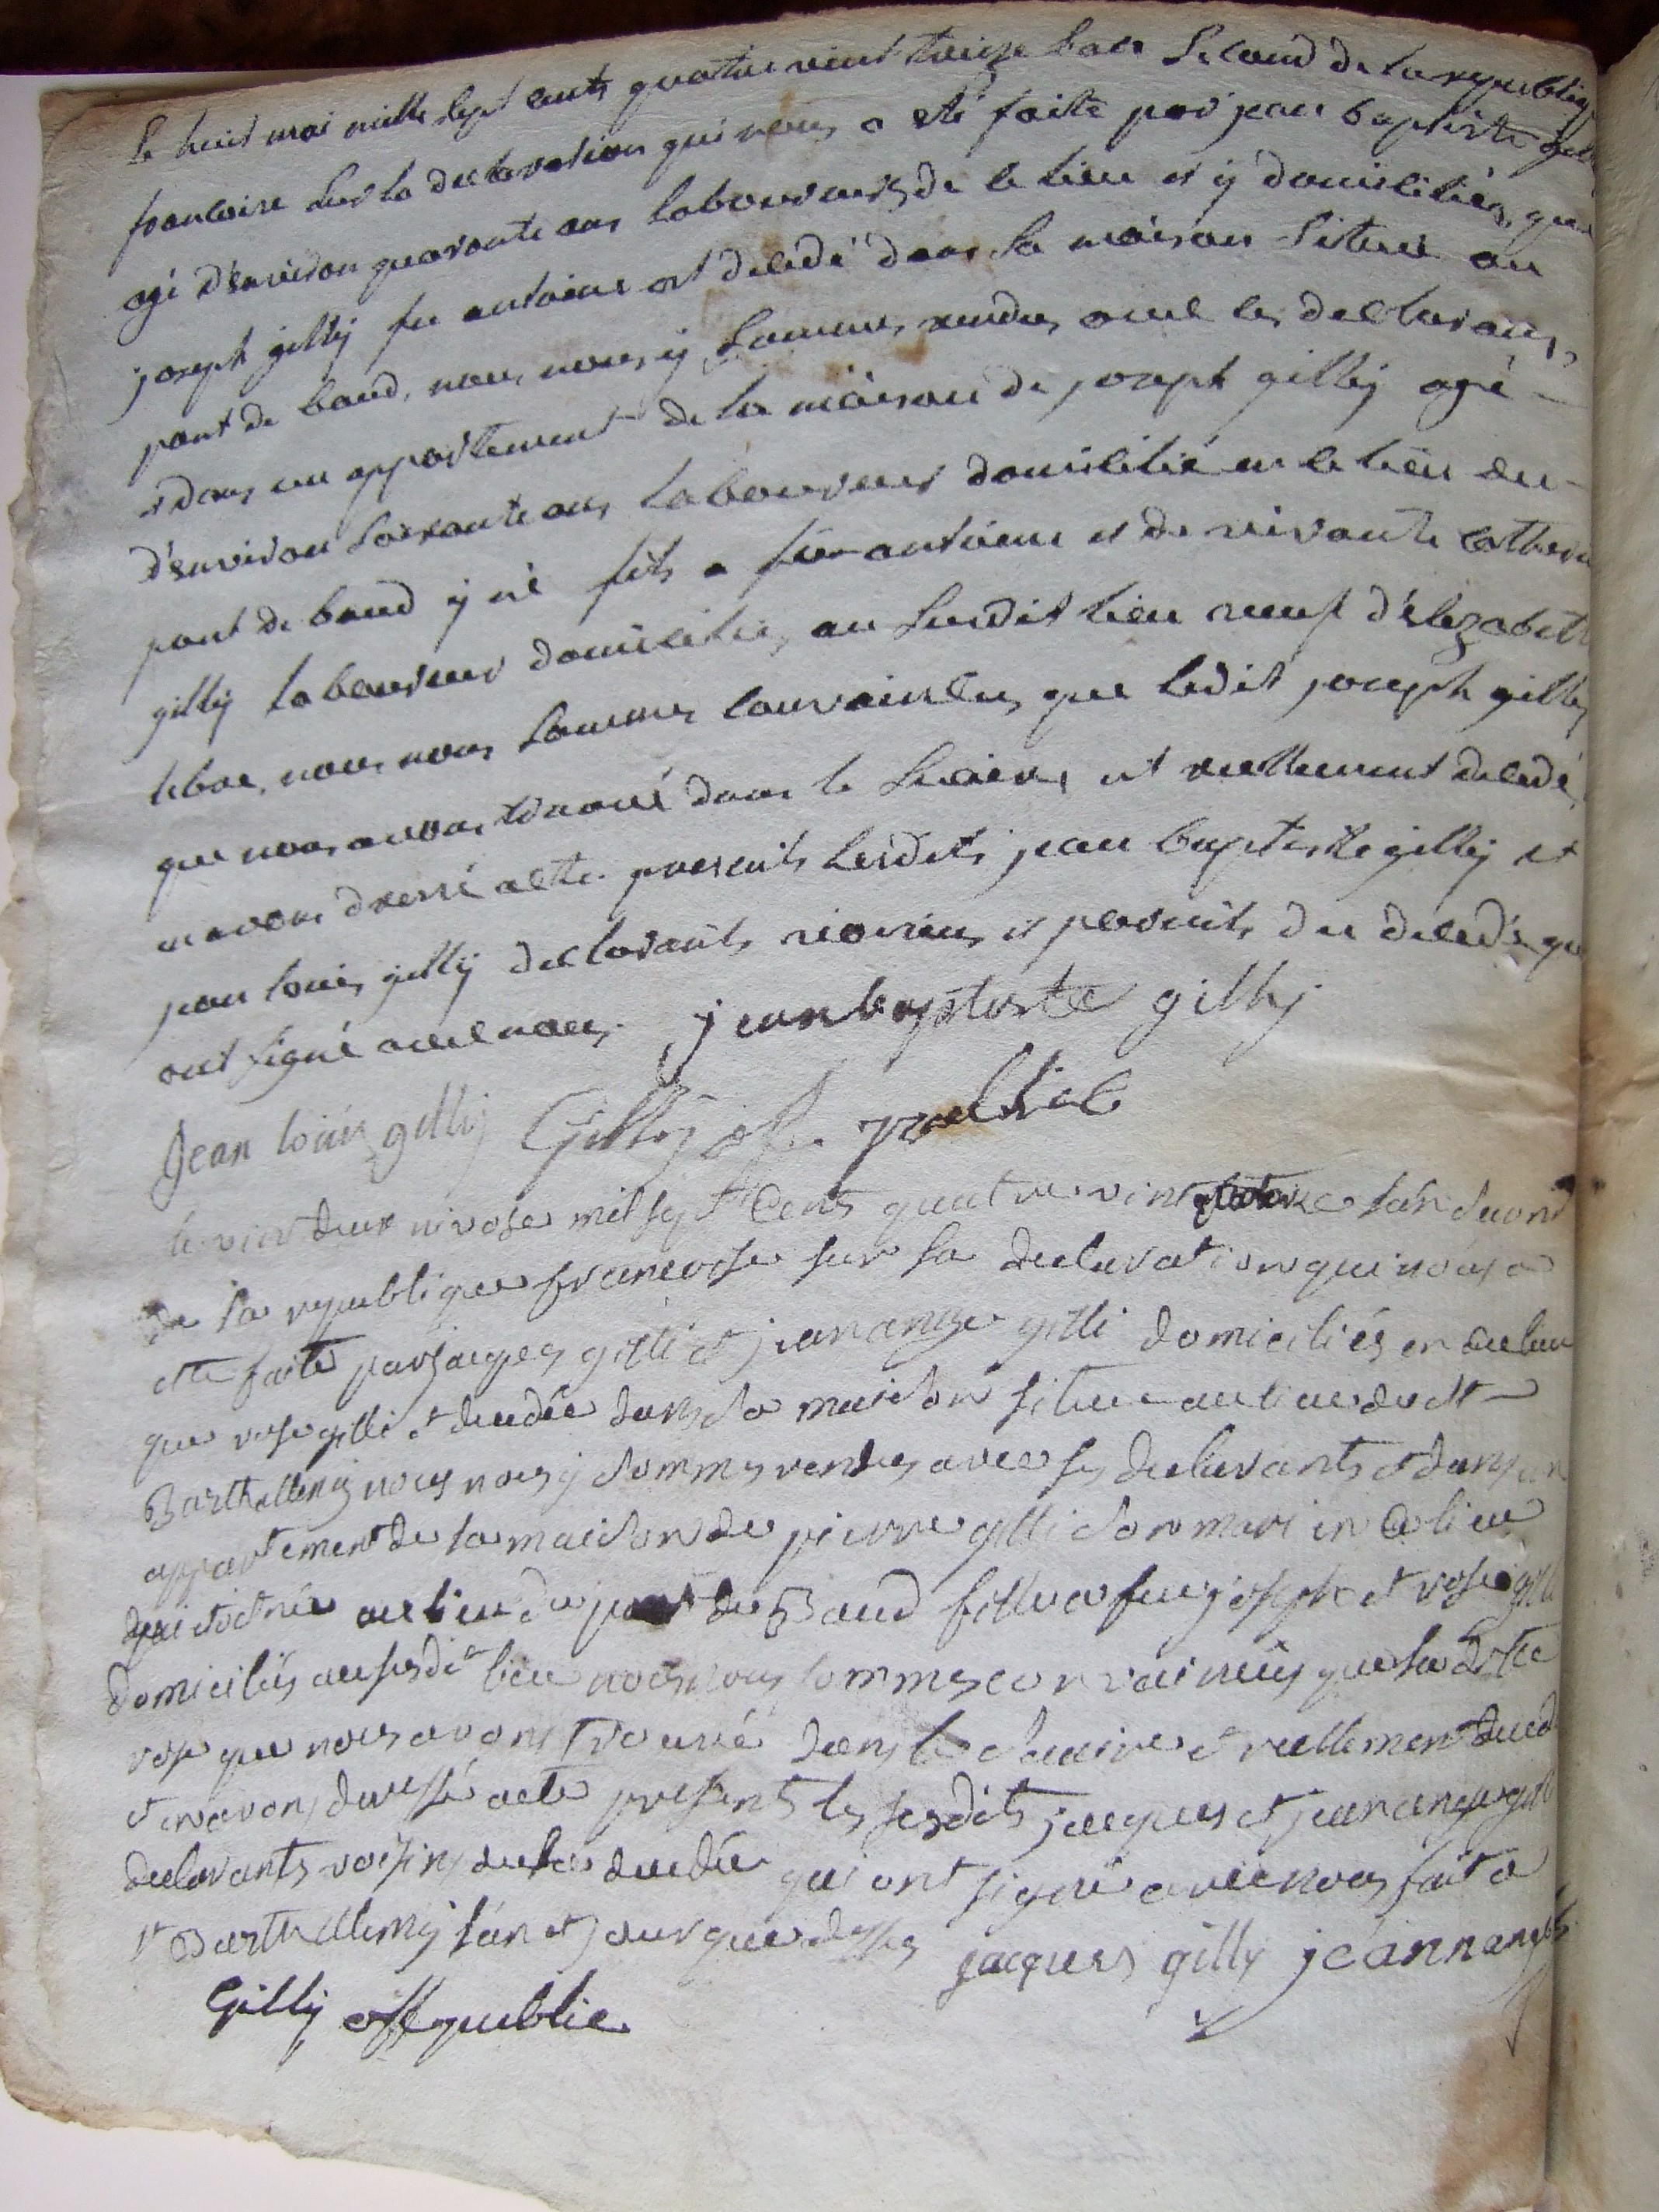 le huit mai mille sept cents quatre vint treize l'an second de la republiq
francoise sur la declaration qui nous a eté faite par jean baptiste gil
agé d'environ quarante ans laboureurs de ce lieu et y domiciliés, que
joseph gilly fu antoine est decedé dans sa maison située au
pont de baud, nous nous y sommes rendus avec les declarans,
et dans un appartement de la maison de joseph gilly agé
d'environ soixante ans laboureur domicilié en ce lieu du
pont de baud y né fils a feu antoine et de vivante catheri
gilly laboureur domiciliés, au susdit lieu veuf d'elizabeth
nous nous sommes convainclus que ledit joseph gilly
que nous avons trouvé dans le suaire, est reellement decedé,
en avons dressé acte. presents lesdits jean baptiste gilly et
jean louis gilly declarants voisins et parents du decedé qui
ont signé avec nous. jean baptiste gilly
Jean loüis gilly Gilly off. public
le vint deux nivose mil sept cents quatre vint l'an second
de la republique francoise sur la declaration qui nous a
eté faite par jaques gilli et jean ange gilli domiciliés en ce lieu
que rose gilli et decedée dans sa maison situe au lieu de st
Barthellemy nous nous y sommes rendus avec les declarants et dans un
appartement de la maison de pierre gilli son mari en ce lieu
née au lieu du pont de Baud fille a feu joseph et rose gilli
domiciliés au susdit lieu nous nous sommes convaincus que la dite
rose que nous avons trouvé dans le suaire et reellement deced
et en avons dressé acte presents les susdits jacques et jean ange gilli
declarants voisins de la decedée qui ont signé avec nous fait a
st Barthellemy l'an et jour que dessus jacques gilly jéann ange
Gilly off publie